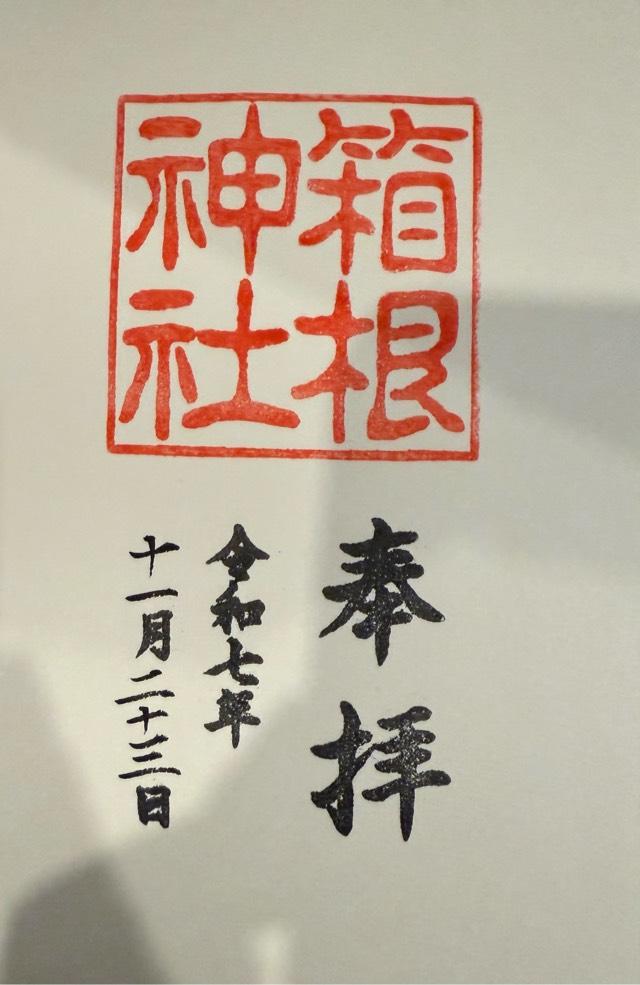 箱根
神社
奉拝
令和七年
十一月二十三日